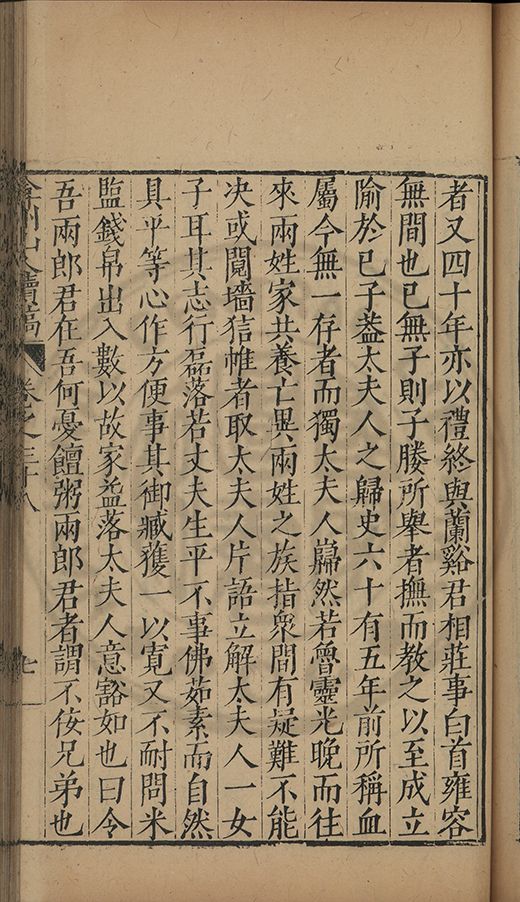 者又四十年亦以禮終與蘭谿君相莊事白首雍容
無間也已無子則子媵所舉者撫而教之以至成立
隃於已子葢太夫人之歸史六十有五年前所稱血
屬今無一存者而獨太夫人巋然若魯靈光晚而往
來兩姓家共養亡異兩姓之族指衆間有疑難不能
决或鬩墻狺帷者取太夫人片語立解太夫人一女
子耳其志行磊落若丈夫生平不事佛茹素而自然
具平等心作方便事其御臧獲一以寛又不耐問米
監錢帛出入數以故家益落太夫人意豁如也曰令
吾兩郎君在吾何憂饘粥兩郎君者謂不佞兄弟也
弇州山人續稿
卷之三十八
七